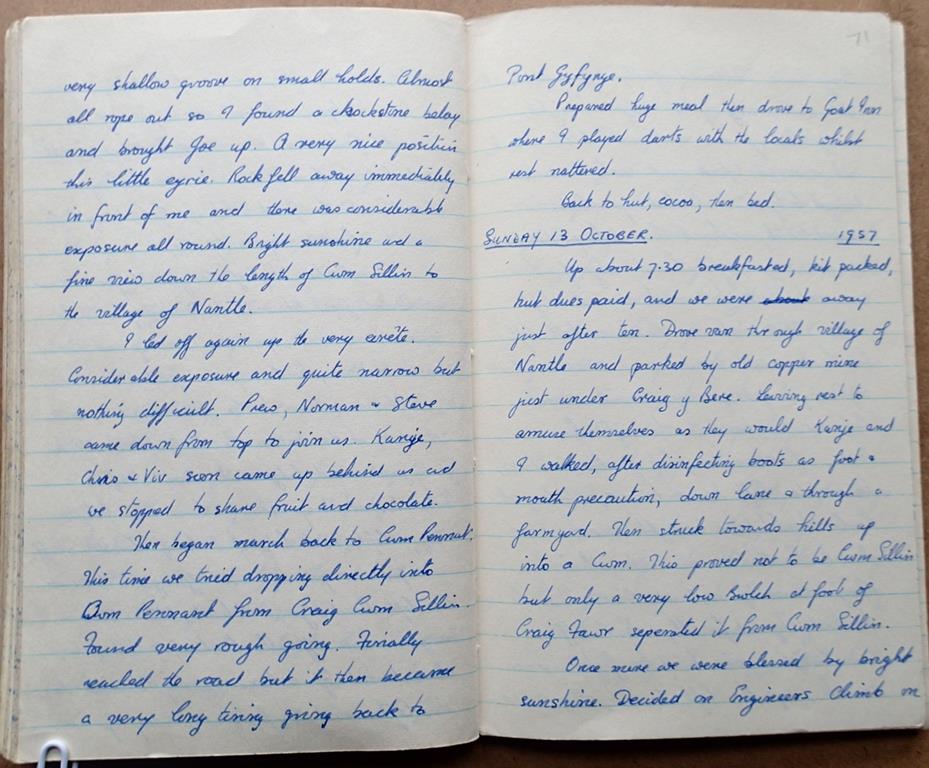 very shallow groove on small holds. Almost
all rope out so I found a chockstone belay
and brought Joe up. A very nice position
this little eyrie. Rock fell away immediately
in front of me and there was considerable
exposure all round. Bright sunshine and a
fine view down the length of Cwm Sillin to
the village of Nantle.
I led off again up the very arête.
Considerable exposure and quite narrow but
nothing difficult. Prew, Norman & Steve
came down from top to join us. Kanje,
Chris & Viv soon came up behind us and
we stopped to share fruit and chocolate.
Then began march back to Cwm Pennant.
This time we tried dropping directly into
Cwm Pennant from Craig Cwm Sillin.
Found very rough going. Finally
reached the road but it then became
a very long tiring going back to
71
Pont Gyfynge.
Prepared huge meal then drove to Goat Inn
where I played darts with the locals whilst
rest nattered.
Back to hut, cocoa, then bed.
SUNDAY 13 OCTOBER. 1957
Up about 7.30 breakfasted, kit packed,
hut dues paid, and we were about away
just after ten. Drove van through village of
Nantle and parked by old copper mine
just under Craig y Bere. Leaving rest to
amuse themselves as they would Kanje and
I walked, after disinfecting boots as foot &
mouth precaution, down lane & through a
farmyard. Then struck towards hills up
into a Cwm. This proved not to be Cwm Sillin
but only a very low Bwlch at foot of
Craig Fawr seperated it from Cwm Sillin.
Once more we were blessed by bright
sunshine. Decided on Engineers Climb on